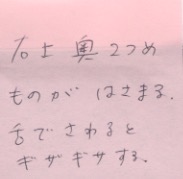 右上 奥2つめ
ものが はさまる.
舌でさわると
ギザギザする.